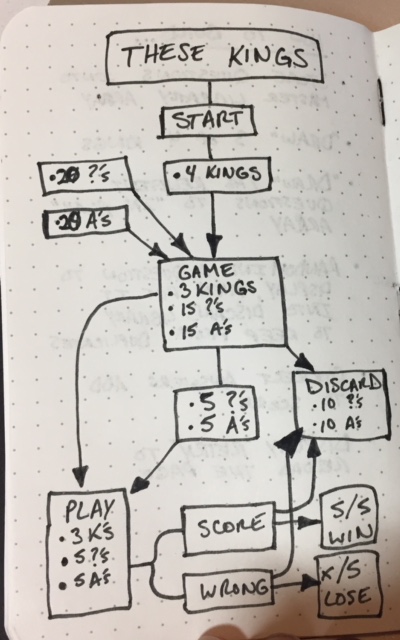 THESE KINGS
START
• 20 ?'s
• 4 KINGS
• 20 A's
GAME
• 3 KINGS
• 15 ?'s
• 15 A's
• 5 ?'s
• 5 A's
DISCARD
• 10 ?'s
• 10 A's
PLAY
• 3 K'S
• 5 ?'s
• 5 A's
SCORE
5/5
WIN
WRONG
X/5
LOSE